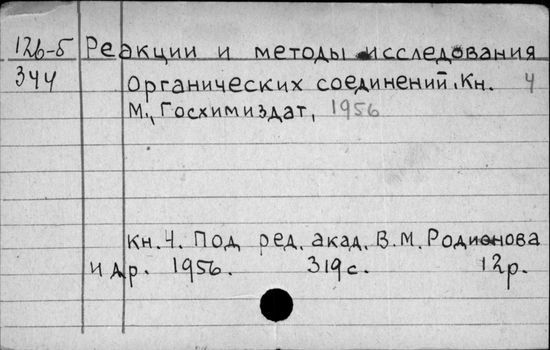 126-5 Реакции и методы исследования
344 Органических соединений. Кн. 4
М., Госхимиздат, 1956
Кн. 4. Под ред. акад. В. М. Родионова
и др. 1956. 319 с. 12 р.